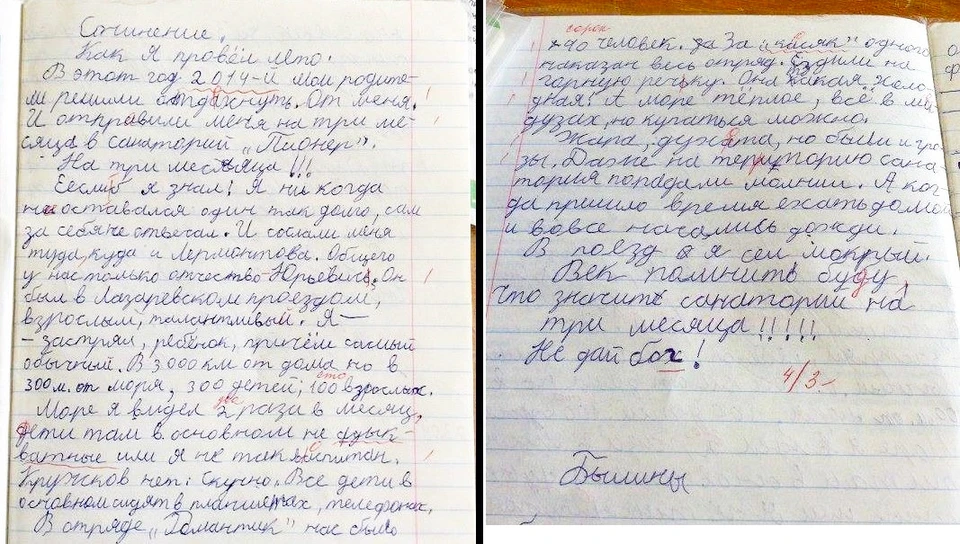 Сочинение.
Как я провёл лето.
В этот год 2014-й мои родите-
ли решили отдохнуть. От меня.
И отправили меня на три ме-
сяца в санаторий „Пионер".
На три месяца!!!
Если б я знал! Я ни когда
не оставался один так долго, сам
за себя не отвечал. И сослали меня
туда, куда и Лермонтова. Общего
у нас только отчество Юрьевичи. Он
был в Лазаревском проездом,
взрослый, талантливый. Я —
– застрял, ребёнок, причём самый
обычный. В 3000 км от дома но в
300 м. от моря, 300 детей, 100 взрослых.
сто
Море я видел 2 раза в месяц,
две
дети там в основном не адык-
ватные или я не так воспитан.
Кружков нет. Скучно. Все дети в
основном сидят в планшетах, телефонах.
В отряде „Романтик" нас было
сорок
40 человек. Да За „касяк" одного
наказан весь отряд. Ходили на
горную речьку. Она такая холо
дная! А море тёплое, всё в ме
дузах, но купаться можно.
Жара, духота, но были и гро
зы. Даже на территорию сана
тория попадали молнии. А ког
да пришло время ехать домой
и вовсе начались дожди.
В поезд я сел мокрый.
Век помнить буду,
что значить санаторий на
три месяца!!!!!
Не дай бог!
4/3-
Былины